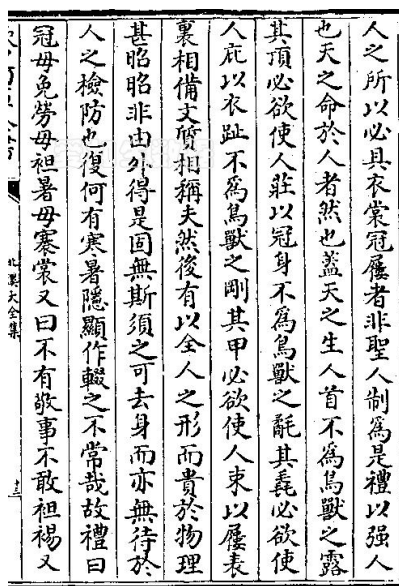 人之所以必具衣裳冠屨者非聖人制為是禮以强人
也天之命於人者然也蓋天之生人首不為鳥獸之露
其頂必欲使人莊以冠身不為鳥獸之氄其毳必欲使
人庇以衣趾不為鳥獸之剛其甲必欲使人束以屨表
裏相備文質相稱夫然後有以全人之形而貴於物理
甚昭昭非由外得是固無斯須之可去身而亦無待於
人之檢防也復何有寒暑隱顯作輟之不常哉故禮曰
冠毋免勞毋袒暑毋褰裳又曰不有敬事不敢袒裼又
北溪大全集
十三